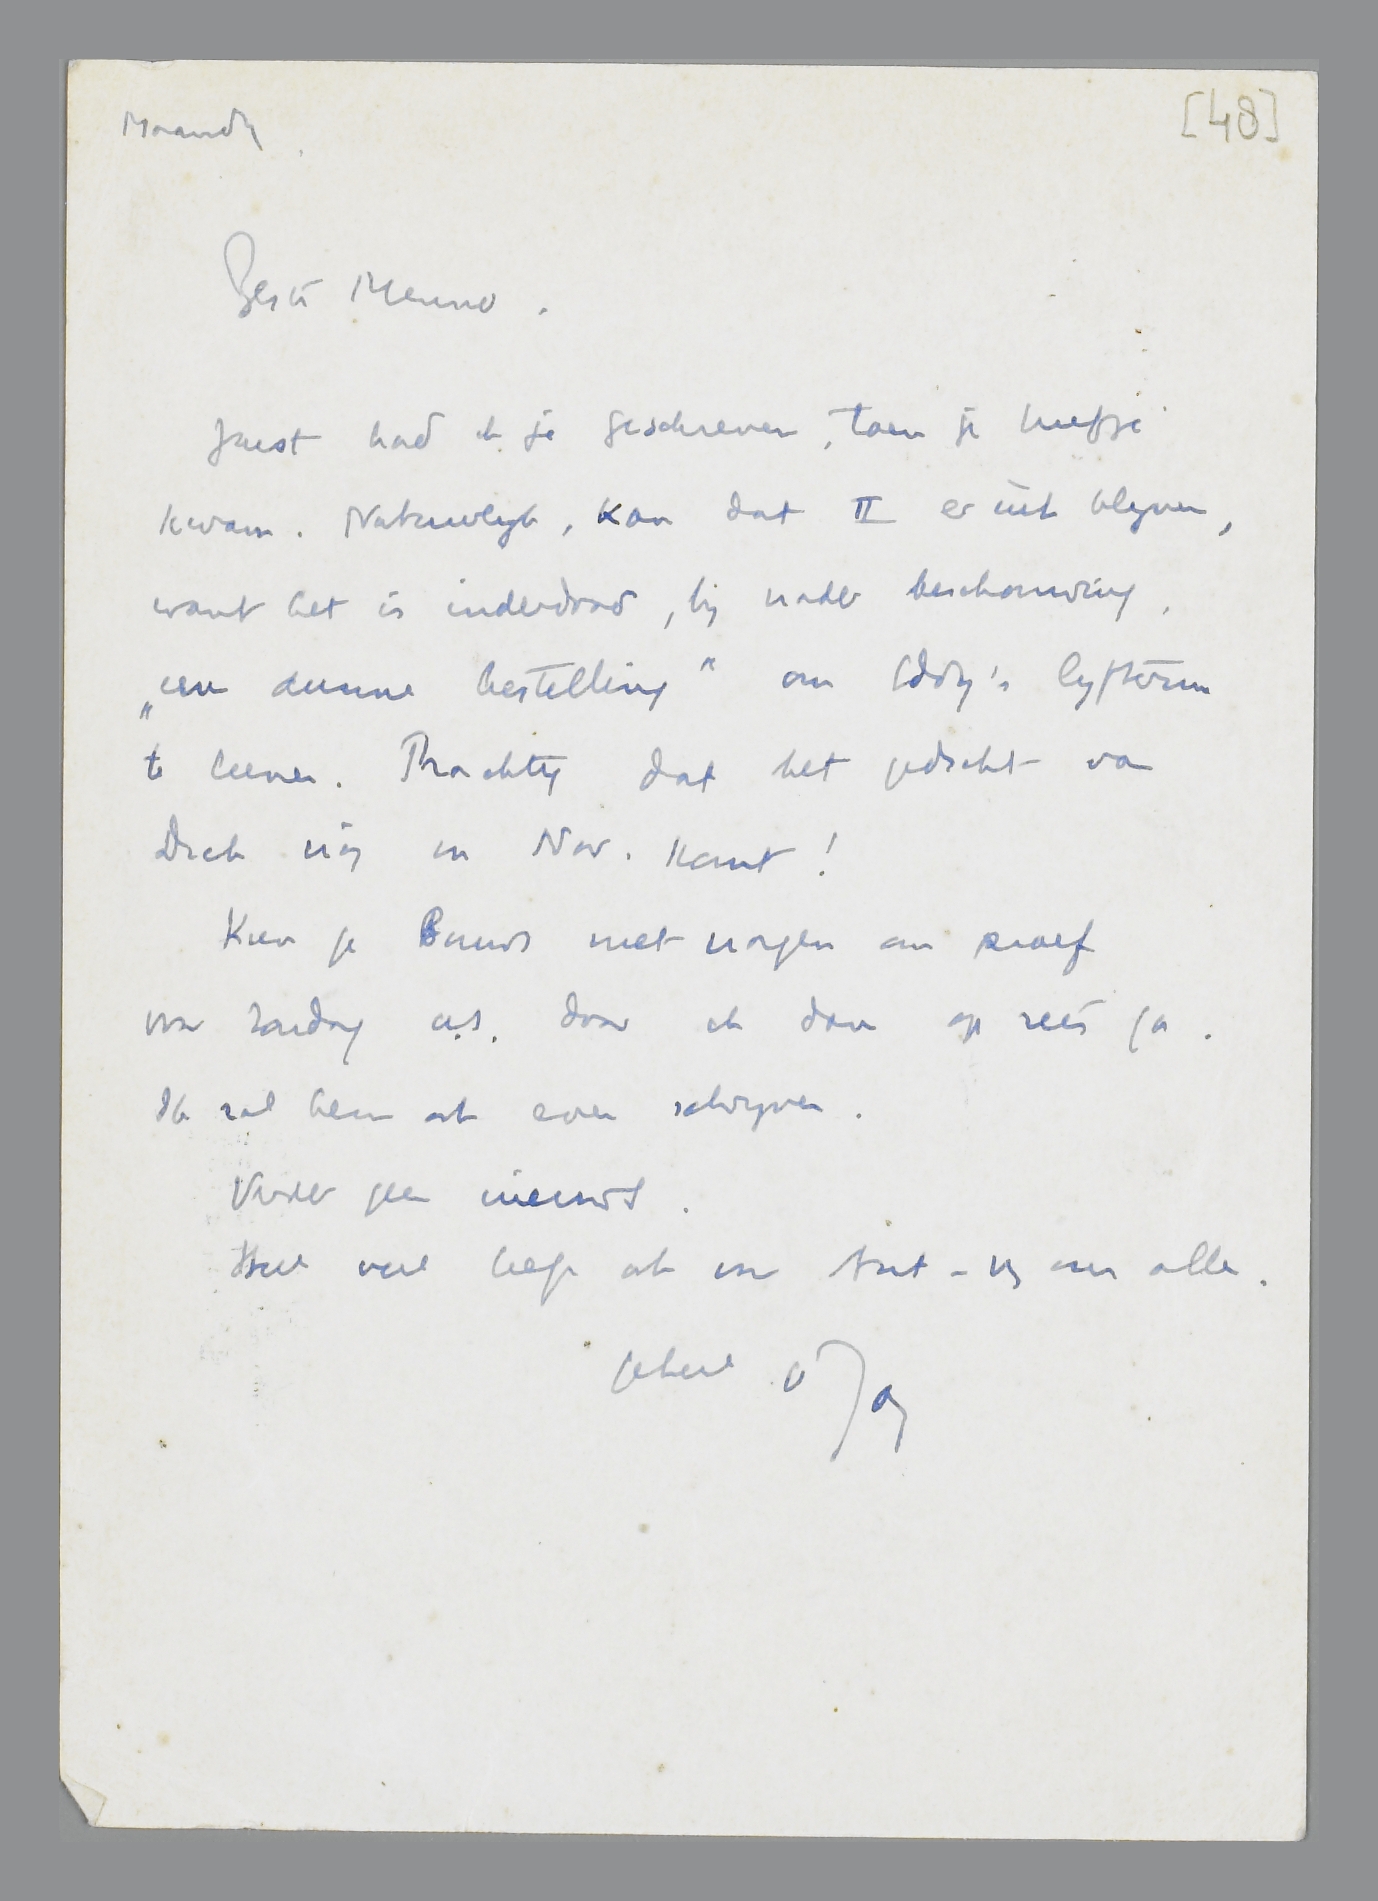 Maandag.
[48]
Beste Menno.
Juist had ik je geschreven, toen je briefje
kwam. Natuurlijk, kan dat II er uit blijven,
want het is inderdaad, bij nader beschouwing,
„een dunne bestelling" om Eddy's
te leenen. Prachtig dat het gedicht van
Dick nog in Nov. komt!
Kun je Bouws niet vragen om proef
voor Zondag a.s. daar ik dan op reis ga.
Ik zal hem ook even schrijven.
Verder geen nieuws.
Heel veel liefs ook voor Ant - wij allen.
geheel je